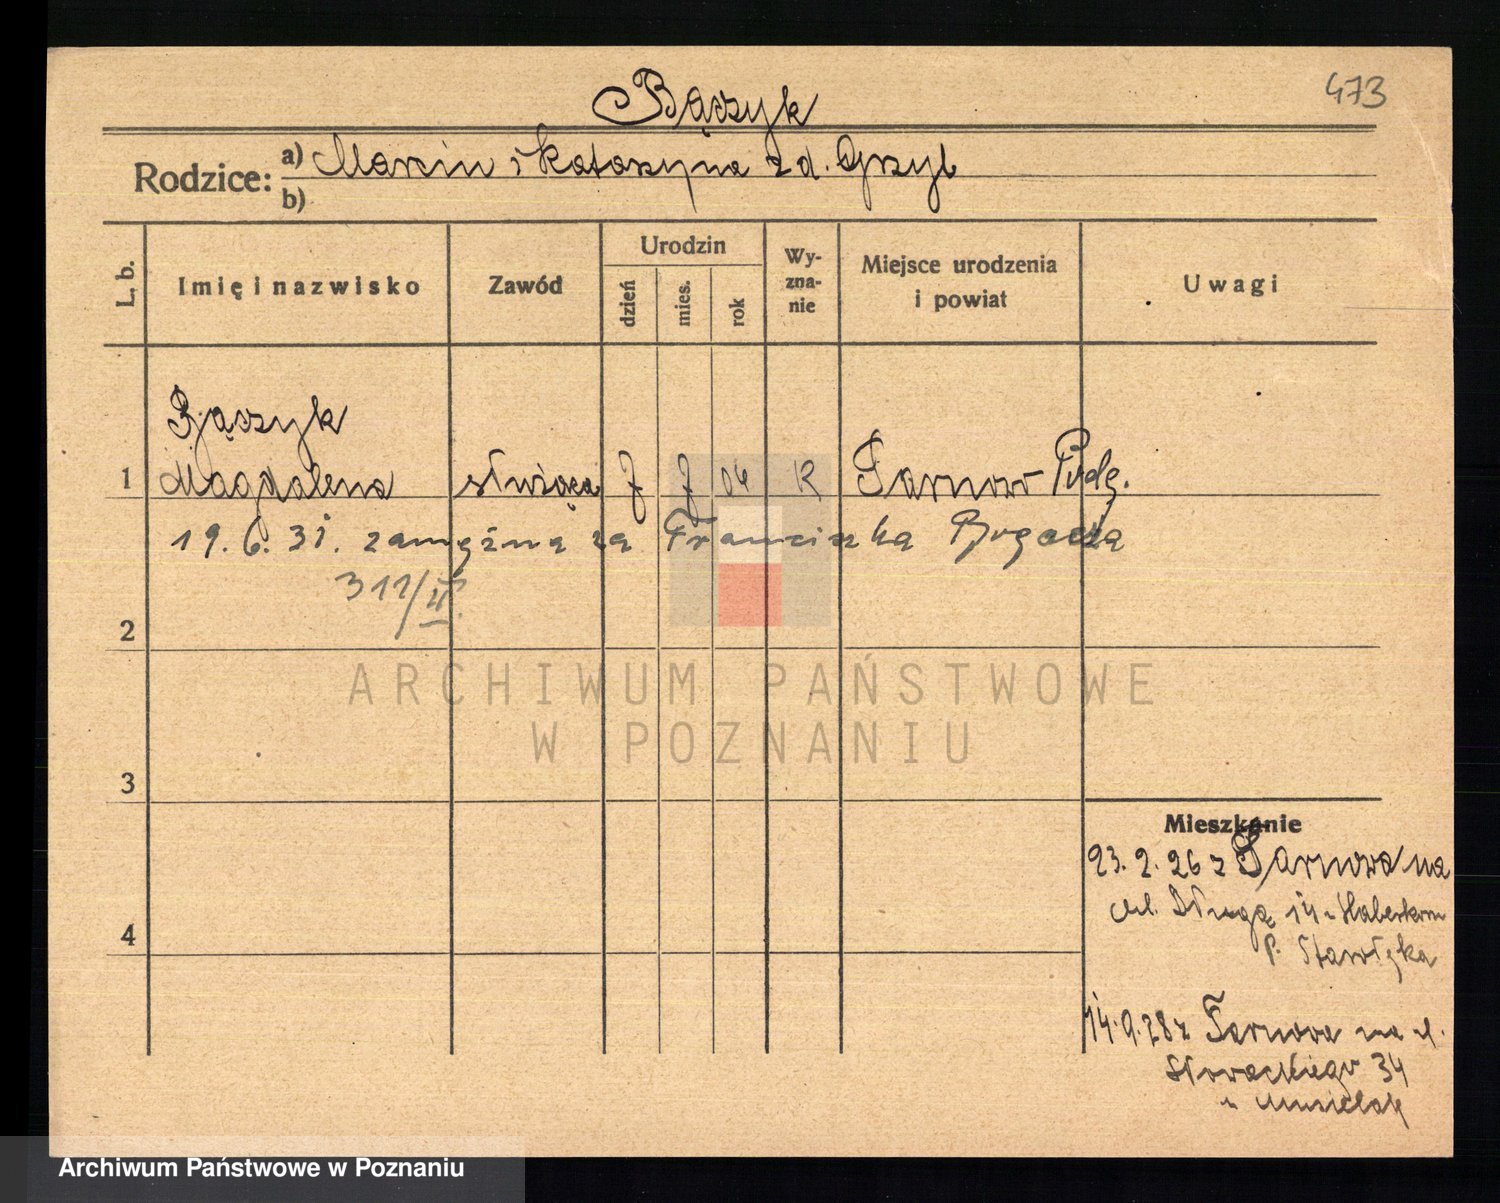 473
Bączyk
Rodzice: a) Marcin i Katarzyna z d. Grzyb
b)
L. b. Imię i nazwisko Zawód Urodzin dzień mies. rok Wy-zna-nie Miejsce urodzenia i powiat Uwagi
Bączyk
1 Magdalena służąca 7 7 04 K Tarnowo Podg.
19. 6. 31. zamężna za Franciszka Bogacza
311/II.
2
3
4
Mieszkanie
23. 2. 26 z Tarnowa na
ul. Długą 14 u
p.
14. 9. 28 z Tarnowa na ul.
Słowackiego 34
u Musielak
ARCHIWUM PAŃSTWOWE
W POZNANIU
Archiwum Państwowe w Poznaniu